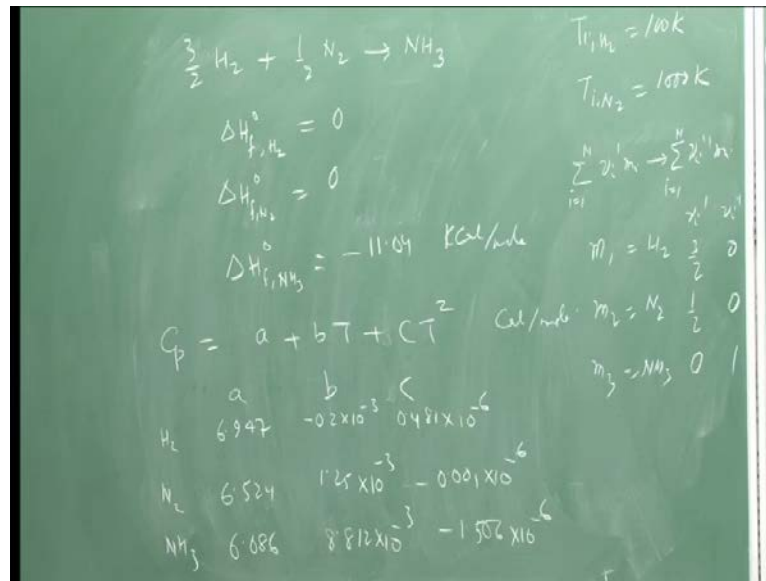 3/2 H₂ + 1/2 N₂ → NH₃
ΔH⁰f,H₂ = 0
ΔH⁰f,N₂ = 0
ΔH⁰f,NH₃ = -11.04 KCal/mole
Cp = a + bT + CT² Cal/mole
a b c
H₂ 6.947 -0.2×10⁻³ 0.481×10⁻⁶
N₂ 6.524 1.25×10⁻³ -0.001×10⁻⁶
NH₃ 6.086 8.812×10⁻³ -1.506×10⁻⁶
Ti,H₂ = 100K
Ti,N₂ = 1000K
∑ᴺᵢ₌₁ νᵢ' mᵢ → ∑ᴺᵢ₌₁ νᵢ'' mᵢ
νᵢ' νᵢ''
m₁ = H₂ 3/2 0
m₂ = N₂ 1/2 0
m₃ = NH₃ 0 1